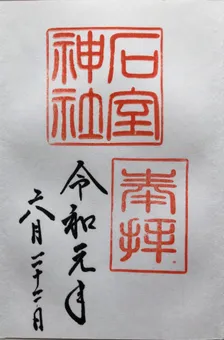 石室
神社
奉拝
令和元年
六月二十二日